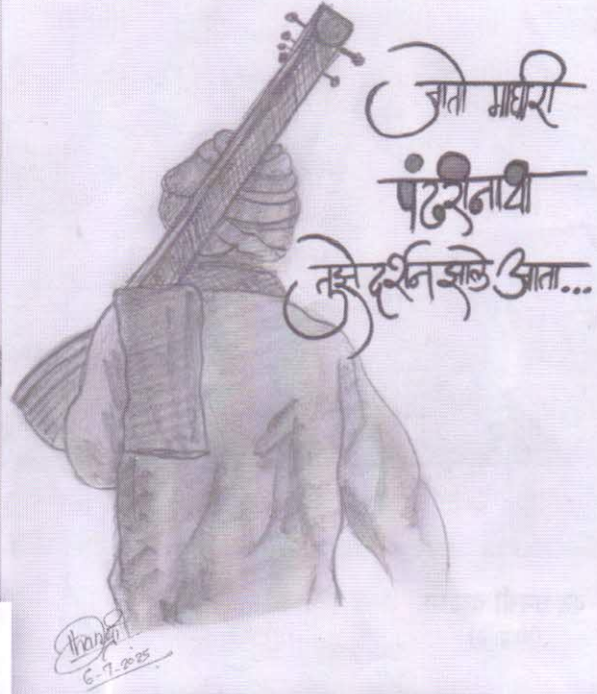 जातो माघारी
पंढरीनाथा
तुझे दर्शन झाले आता...
6-7-2025